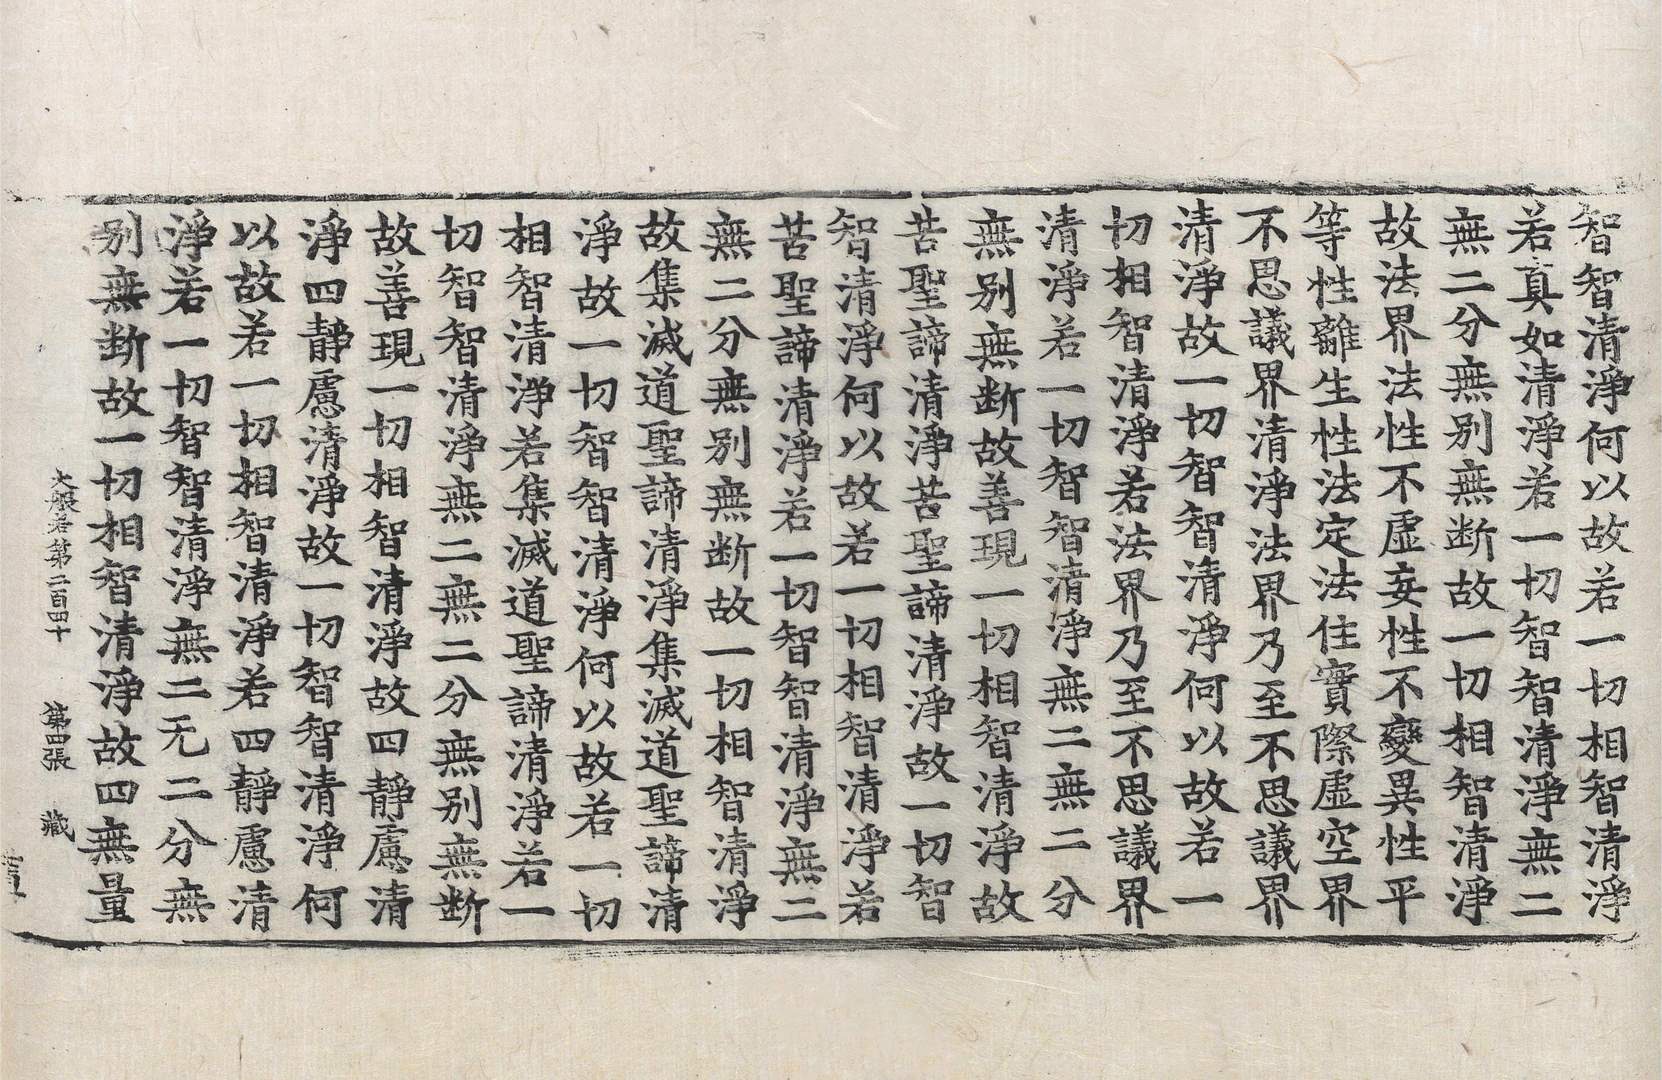 智智清淨何以故若一切相智清淨
若真如清淨若一切智智清淨無二
無二分無别無断故一切相智清淨
故法界法性不虛妄性不變異性平
等性離生性法定法住實際虛空界
不思議界清淨法界乃至不思議界
清淨故一切智智清淨何以故若一
切相智清淨若法界乃至不思議界
清淨若一切智智清淨無二無二分
無别無断故善現一切相智清淨故
苦聖諦清淨苦聖諦清淨故一切智
智清淨何以故若一切相智清淨若
苦聖諦清淨若一切智智清淨無二
無二分無别無断故一切相智清淨
故集滅道聖諦清淨集滅道聖諦清
淨故一切智智清淨何以故若一切
相智清淨若集滅道聖諦清淨若一
切智智清淨無二無二分無别無断
故善現一切相智清淨故四靜慮清
淨四靜慮清淨故一切智智清淨何
以故若一切相智清淨若四靜慮清
淨若一切智智清淨無二无二分無
别無断故一切相智清淨故四無量
大般若第二百四十 第四張 藏